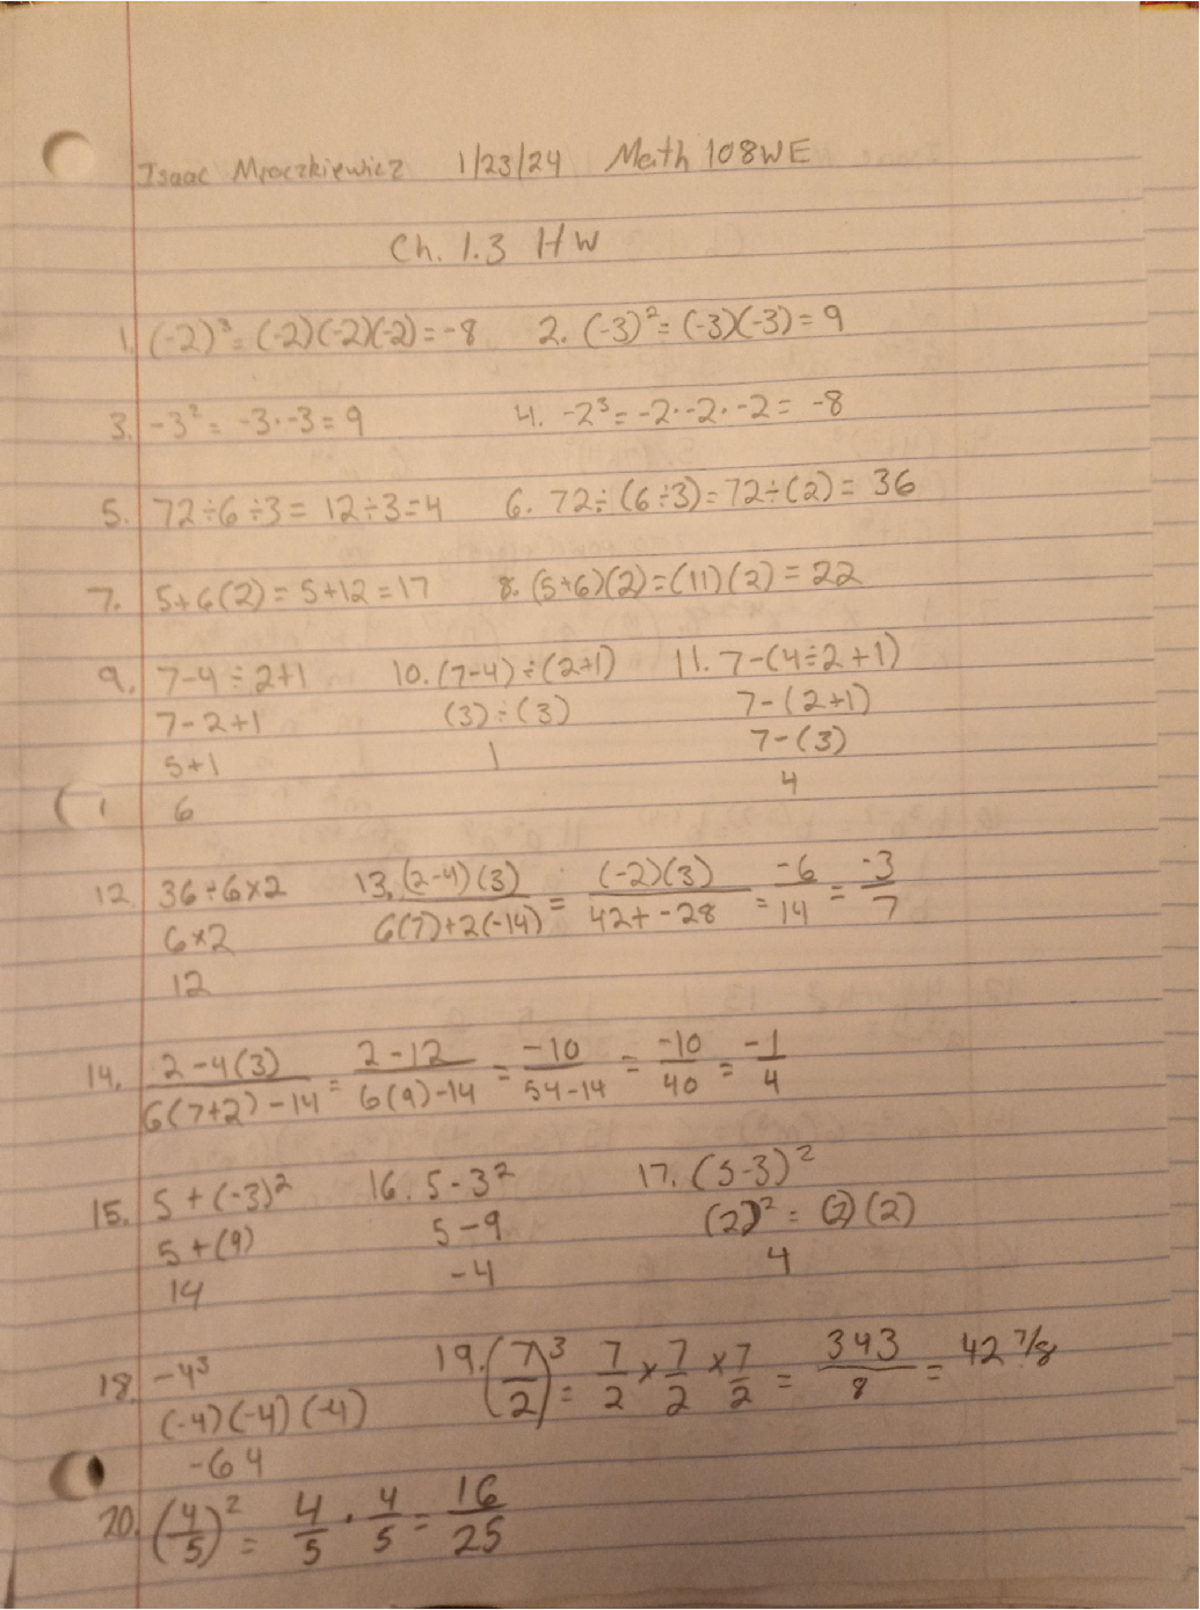 Isaac Mroczkiewicz 1/23/24 Math 108WE
Ch. 1.3 HW
1. (-2)³ = (-2)(-2)(-2) = -8 2. (-3)² = (-3)(-3) = 9
3. -3² = -3·-3 = 9 4. -2³ = -2·-2·-2 = -8
5. 72÷6÷3 = 12÷3 = 4 6. 72÷(6÷3) = 72÷(2) = 36
7. 5+6(2) = 5+12 = 17 8. (5+6)(2) = (11)(2) = 22
9. 7-4÷2+1 10. (7-4)÷(2+1) 11. 7-(4÷2+1)
7-2+1 (3)÷(3) 7-(2+1)
5+1 1 7-(3)
6 4
12. 36÷6×2 13. (2-4)(3)/6(7)+2(-14) = (-2)(3)/42+-28 = -6/14 = -3/7
6×2
12
14. 2-4(3)/6(7+2)-14 = 2-12/6(9)-14 = -10/54-14 = -10/40 = -1/4
15. 5+(-3)² 16. 5-3² 17. (5-3)²
5+(9) 5-9 (2)² = (2)(2)
14 -4 4
18. -4³ 19. (7/2)³ = 7/2 × 7/2 × 7/2 = 343/8 = 42 7/8
(-4)(-4)(-4)
-64
20. (4/5)² = 4/5 · 4/5 = 16/25